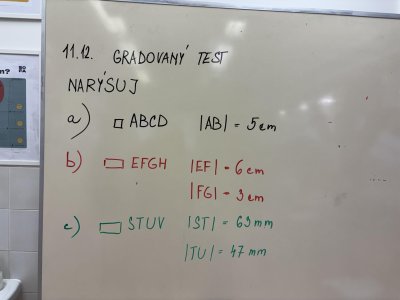 11.12. GRADOVANÝ TEST
NARÝSUJ
a) □ ABCD |AB| = 5cm
b) ▭ EFGH |EF| = 6cm
|FG| = 3cm
c) ▭ STUV |ST| = 63mm
|TU| = 47mm